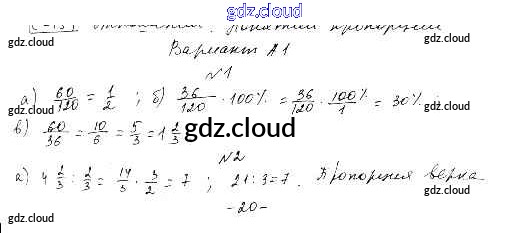 gdz.cloud
С-13. Отношения. Понятие пропорции
gdz.cloud gdz.cloud
Вариант А1
№1
а) 60/120 = 1/2 ; б) 36/120 · 100% = 36/120 · 100%/1 = 30%
gdz.cloud
в) 60/36 = 10/6 = 5/3 = 1 2/3
gdz.cloud
№2
а) 4 2/3 : 2/3 = 14/3 · 3/2 = 7 ; 21 : 3 = 7. Пропорция верна.
gdz.cloud
- 20 -
gdz.cloud gdz.cloud